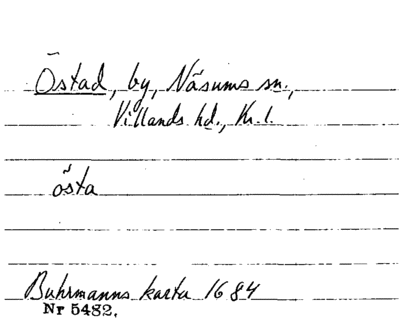 Östad, by, Näsums sn.,
Villands hd., Kr. l.
östa
Buhrmanns karta 1684
Nr 5482.